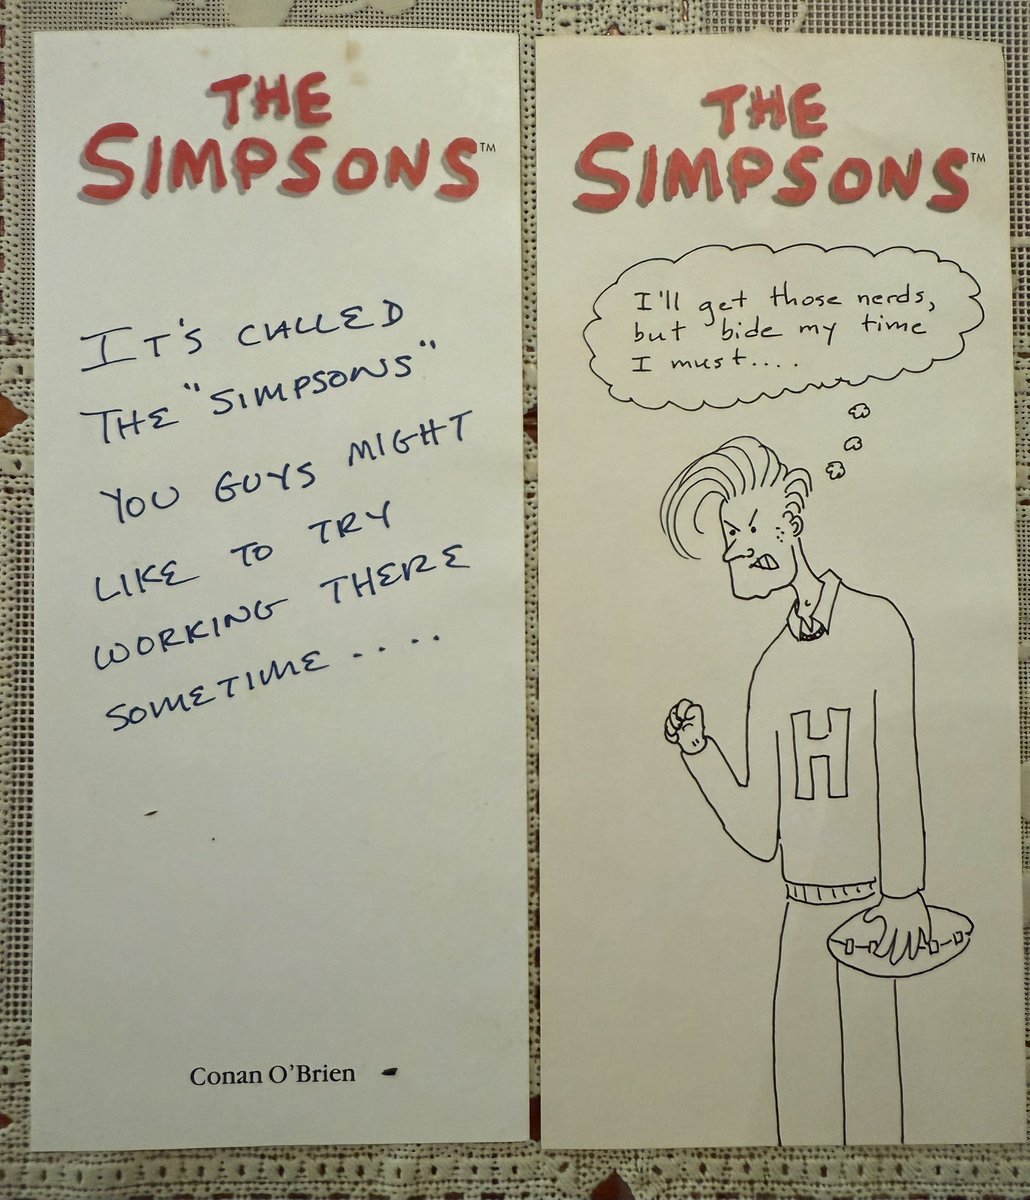 THE
SIMPSONS™
IT'S CALLED
THE "SIMPSONS"
YOU GUYS MIGHT
LIKE TO TRY
WORKING THERE
SOMETIME....
Conan O'Brien
THE
SIMPSONS™
I'll get those nerds,
but bide my time
I must....
H